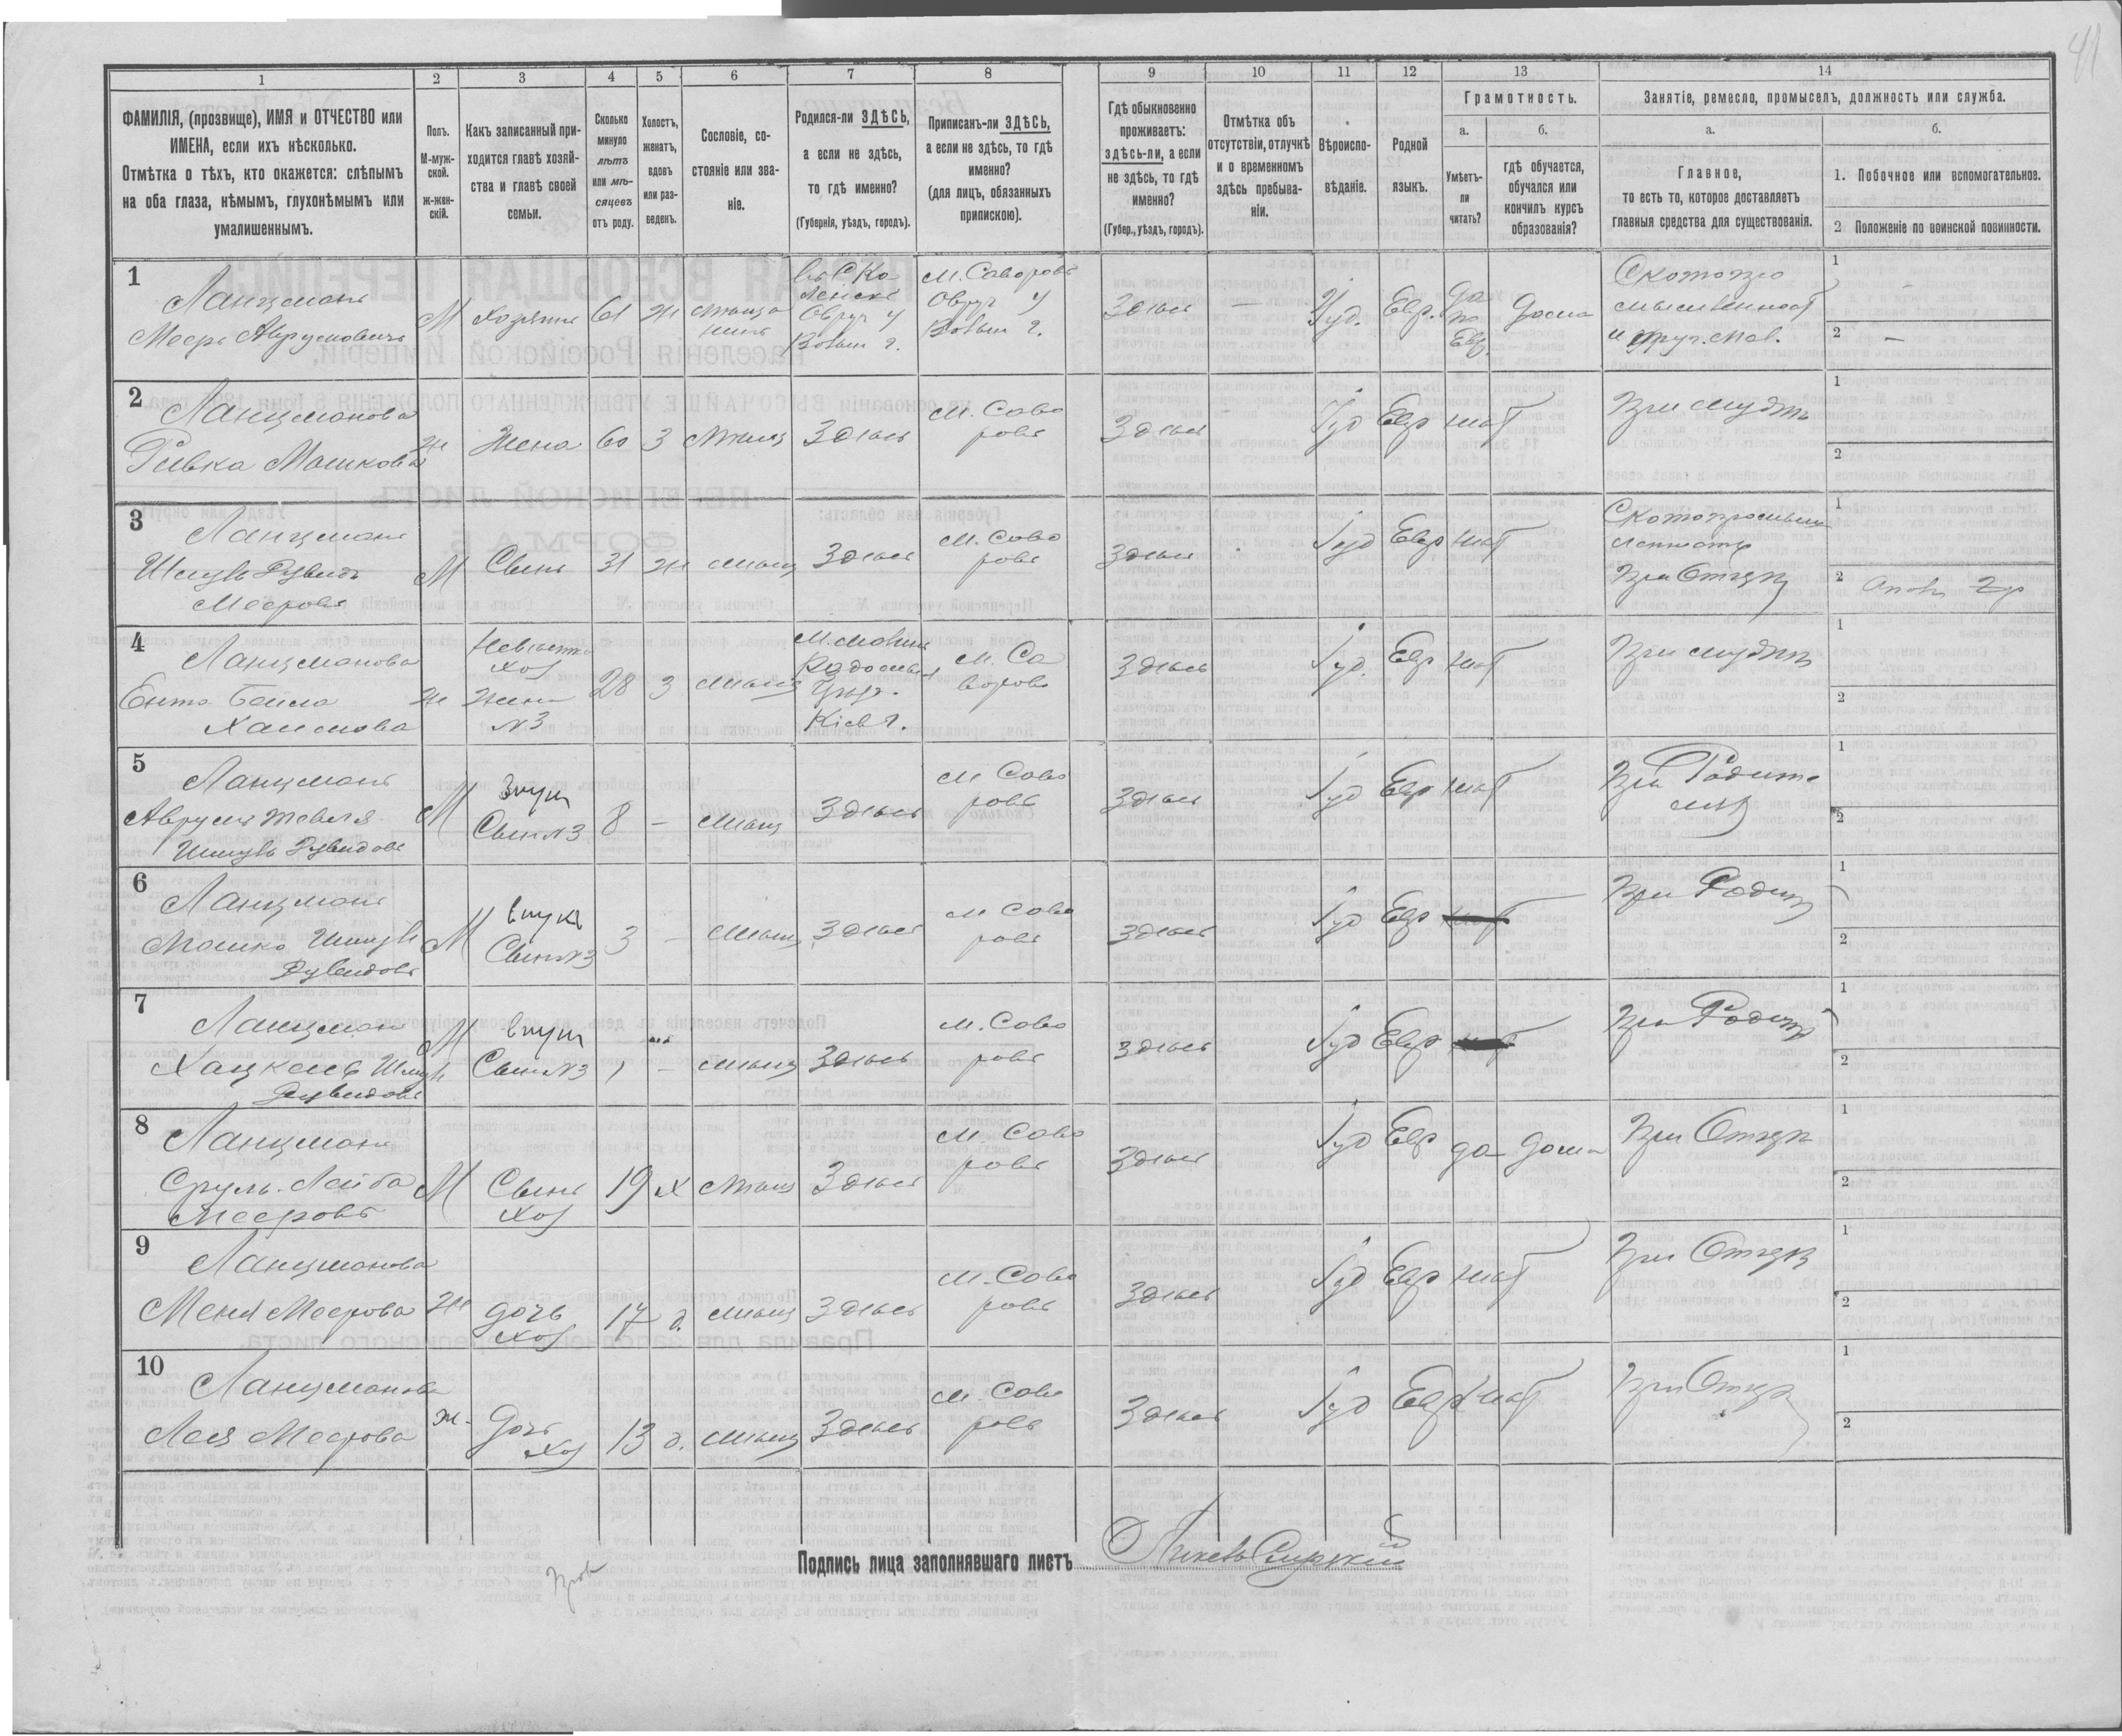 41
1 2 3 4 5 6 7 8 9 10 11 12 13 14
ФАМИЛІЯ, (прозвище), ИМЯ и ОТЧЕСТВО или
ИМЕНА, если ихъ нѣсколько.
Отмѣтка о тѣхъ, кто окажется: слѣпымъ
на оба глаза, нѣмымъ, глухонѣмымъ или
умалишеннымъ.
Полъ.
М-муж-
ской.
ж-жен-
скій.
Какъ записанный при-
ходится главѣ хозяй-
ства и главѣ своей
семьи.
Сколько
минуло
лѣтъ
или мѣ-
сяцевъ
отъ роду.
Холостъ,
женатъ,
вдовъ
или раз-
веденъ.
Сословіе, со-
стояніе или зва-
ніе.
Родился-ли ЗДѢСЬ,
а если не здѣсь,
то гдѣ именно?
(Губернія, уѣздъ, городъ).
Приписанъ-ли ЗДѢСЬ,
а если не здѣсь, то гдѣ
именно?
(для лицъ, обязанныхъ
припискою).
Гдѣ обыкновенно
проживаетъ:
здѣсь-ли, а если
не здѣсь, то гдѣ
именно?
(Губер., уѣздъ, городъ).
Отмѣтка объ
отсутствіи, отлучкѣ
и о временномъ
здѣсь пребыва-
ніи.
Вѣроиспо-
вѣданіе.
Родной
языкъ.
Грамотность.
а.
Умѣетъ-
ли
читать?
б.
гдѣ обучается,
обучался или
кончилъ курсъ
образованія?
Занятіе, ремесло, промыселъ, должность или служба.
а.
Главное,
то есть то, которое доставляетъ
главныя средства для существованія.
б.
1. Побочное или вспомогательное.
2 Положеніе по воинской повинности.
1
Ланцманъ
Меєръ Аврумовичъ
М Хозяинъ 61 ж мѣща
нинъ
Овруч у
Волын г.
м. Саворовъ
Овруч у
Волын г.
Здѣсь — Іуд. Евр. да
по
Евр.
дома
1
2 —
2
Ланцманова
Ривка Мошкова
ж Жена 60 3 мѣщ Здѣсь м. Сово
ровъ
Здѣсь Іуд Евр нѣт При мужѣ
1
2
3
Ланцманъ
Шмуль Дувидъ
Меєровъ
М Сынъ 31 ж мѣщ Здѣсь м. Сово
ровъ
Здѣсь Іуд Евр нѣт
При Отцѣ
1
2
4
Ланцманова
Ента Бейла
Хаимова
ж Невѣстка
хоз
жена
№3
28 3 мѣщ
Радомысл
Кіев г.
м. Са
ворово
Здѣсь Іуд. Евр нѣт При мужѣ
1
2
5
Ланцманъ
Аврумъ Тевеля
Шмуль Дувидовъ
М Внук
Сын №3
8 — мѣщ Здѣсь м Сово
ровъ
Здѣсь Іуд Евр нѣт При Родите
лях
1
2
6
Ланцманъ
Мошко Шмуль
Дувидовъ
М Внукъ
Сын №3
3 — мѣщ Здѣсь м Сово
ровъ
Здѣсь Іуд Евр При Родит
1
2
7
Ланцманъ
Хацкель Шмуль
Дувидовъ
М Внук
Сын №3
1 — мѣщ Здѣсь м. Сово
ровъ
Здѣсь Іуд Евр При Родит
1
2
8
Ланцманъ
Сруль-Лейба
Меєровъ
М Сынъ
Хоз
19 х мѣщ Здѣсь м. Сово
ровъ
Здѣсь Іуд Евр да дома При Отцѣ
1
2
9
Ланцманова
Меня Меєрова
ж дочь
Хоз
17 д. мѣщ Здѣсь м. Сово
ровъ
Здѣсь Іуд Евр нѣт При Отцѣ
1
2
10
Ланцманова
Лея Меєрова
ж. Дочь
Хоз
13 д. мѣщ Здѣсь м Сово
ровъ
Здѣсь Іуд Евр нѣт При Отцѣ
1
2
Подпись лица заполнявшаго листъ